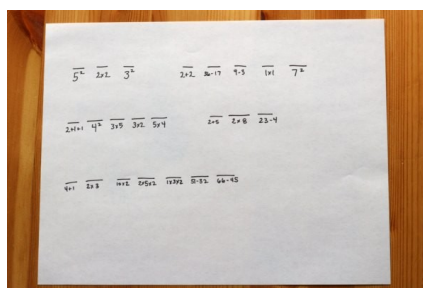 5² 2x2 3² 2+2 36-17 9-5 1x1 7²
2+1+1 4² 3x5 3x2 5x4 2+5 2x8 23-4
4+1 2x3 1x2 2x5x2 1x3x2 51-32 66-45